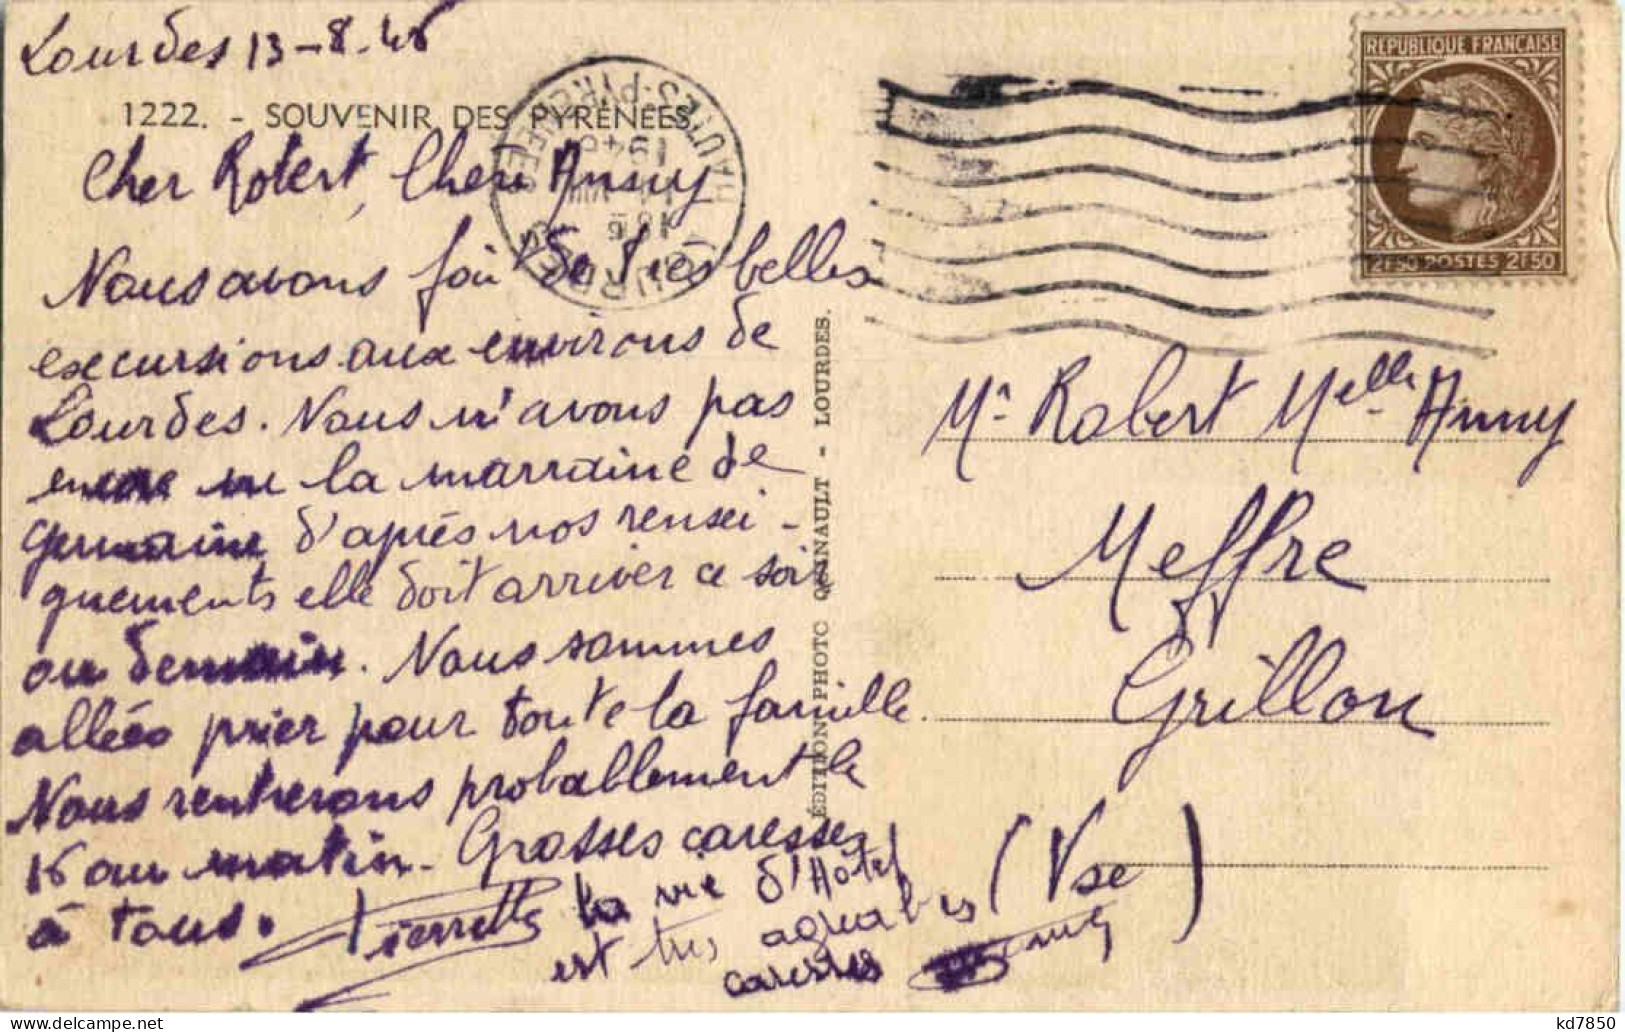 Lourdes 13-8-46
1222. - SOUVENIR DES PYRÉNÉES.
Cher Robert, Chère Anny
Nous avons fait de très belles
excursions aux environs de
Lourdes. Nous n'avons pas
encore vu la marraine de
Germaine d'après nos rensei-
gnements elle doit arriver ce soir
ou demain. Nous sommes
allées prier pour toute la famille.
Nous rentrerons probablement le
16 au matin. Grosses caresses
à tous. Pierrette
la vie d'Hôtel
est très agréable
caresses
ÉDITION PHOTO QUINAULT - LOURDES.
LOURDES
HAUTES-PYRÉNÉES
18H
14 VIII
194
RÉPUBLIQUE FRANÇAISE
2F50 POSTES 2F50
Mr Robert Melle Anny
Meffre
Grillon
(Vse)
kd7850